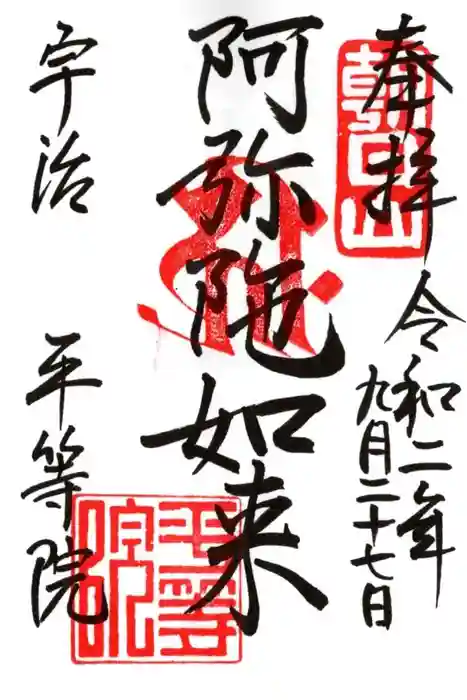 奉拝
令和二年
九月二十七日
朝日山
阿弥陀如来
宇治
平等院
平等院